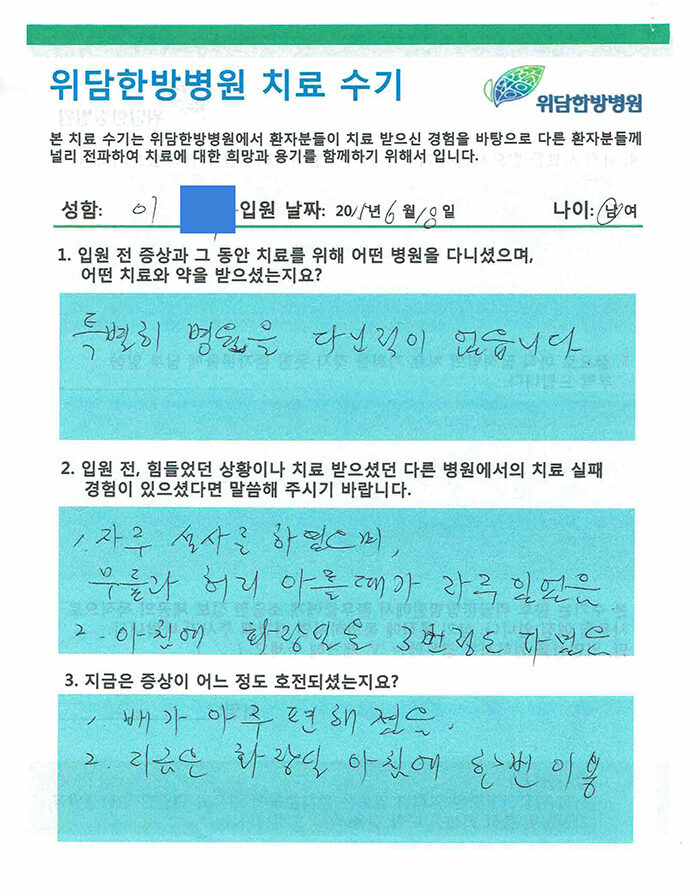 위담한방병원 치료 수기
위담한방병원
본 치료 수기는 위담한방병원에서 환자분들이 치료 받으신 경험을 바탕으로 다른 환자분들께
널리 전파하여 치료에 대한 희망과 용기를 함께하기 위해서 입니다.
성함: 이 입원 날짜: 2015년 6월 18일 나이: 남 여
1. 입원 전 증상과 그 동안 치료를 위해 어떤 병원을 다니셨으며,
어떤 치료와 약을 받으셨는지요?
특별히 병원을 다닌적이 없습니다
2. 입원 전, 힘들었던 상황이나 치료 받으셨던 다른 병원에서의 치료 실패
경험이 있으셨다면 말씀해 주시기 바랍니다.
1. 자주 설사를 하였으며,
무릎과 허리 아플때가 자주 있었음
2. 아침에 화장실을 3번정도 다녔음
3. 지금은 증상이 어느 정도 호전되셨는지요?
1. 배가 아주 편해 졌음.
2. 지금은 화장실 아침에 한번 이용